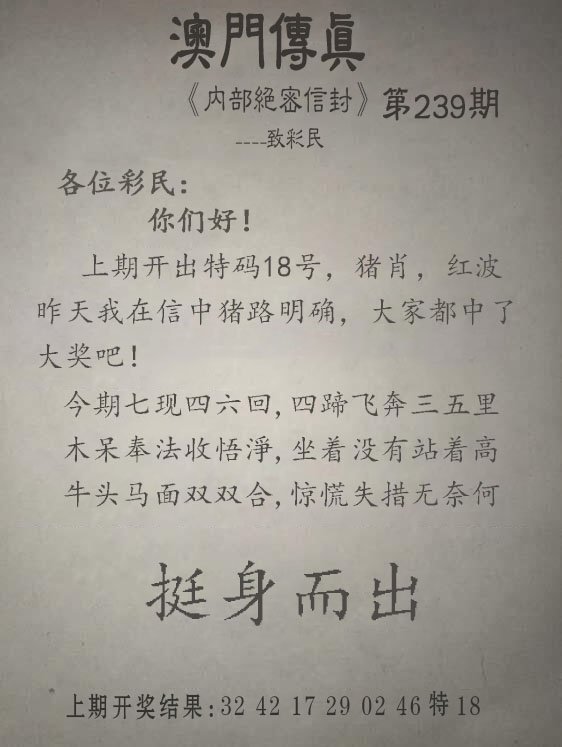 澳門傳真
《内部絕密信封》第239期
----致彩民
各位彩民:
你们好!
上期开出特码18号,猪肖,红波
昨天我在信中猪路明确,大家都中了
大奖吧!
今期七现四六回,四蹄飞奔三五里
木呆奉法收悟淨,坐着没有站着高
牛头马面双双合,惊慌失措无奈何
挺身而出
上期开奖结果:32 42 17 29 02 46 特 18